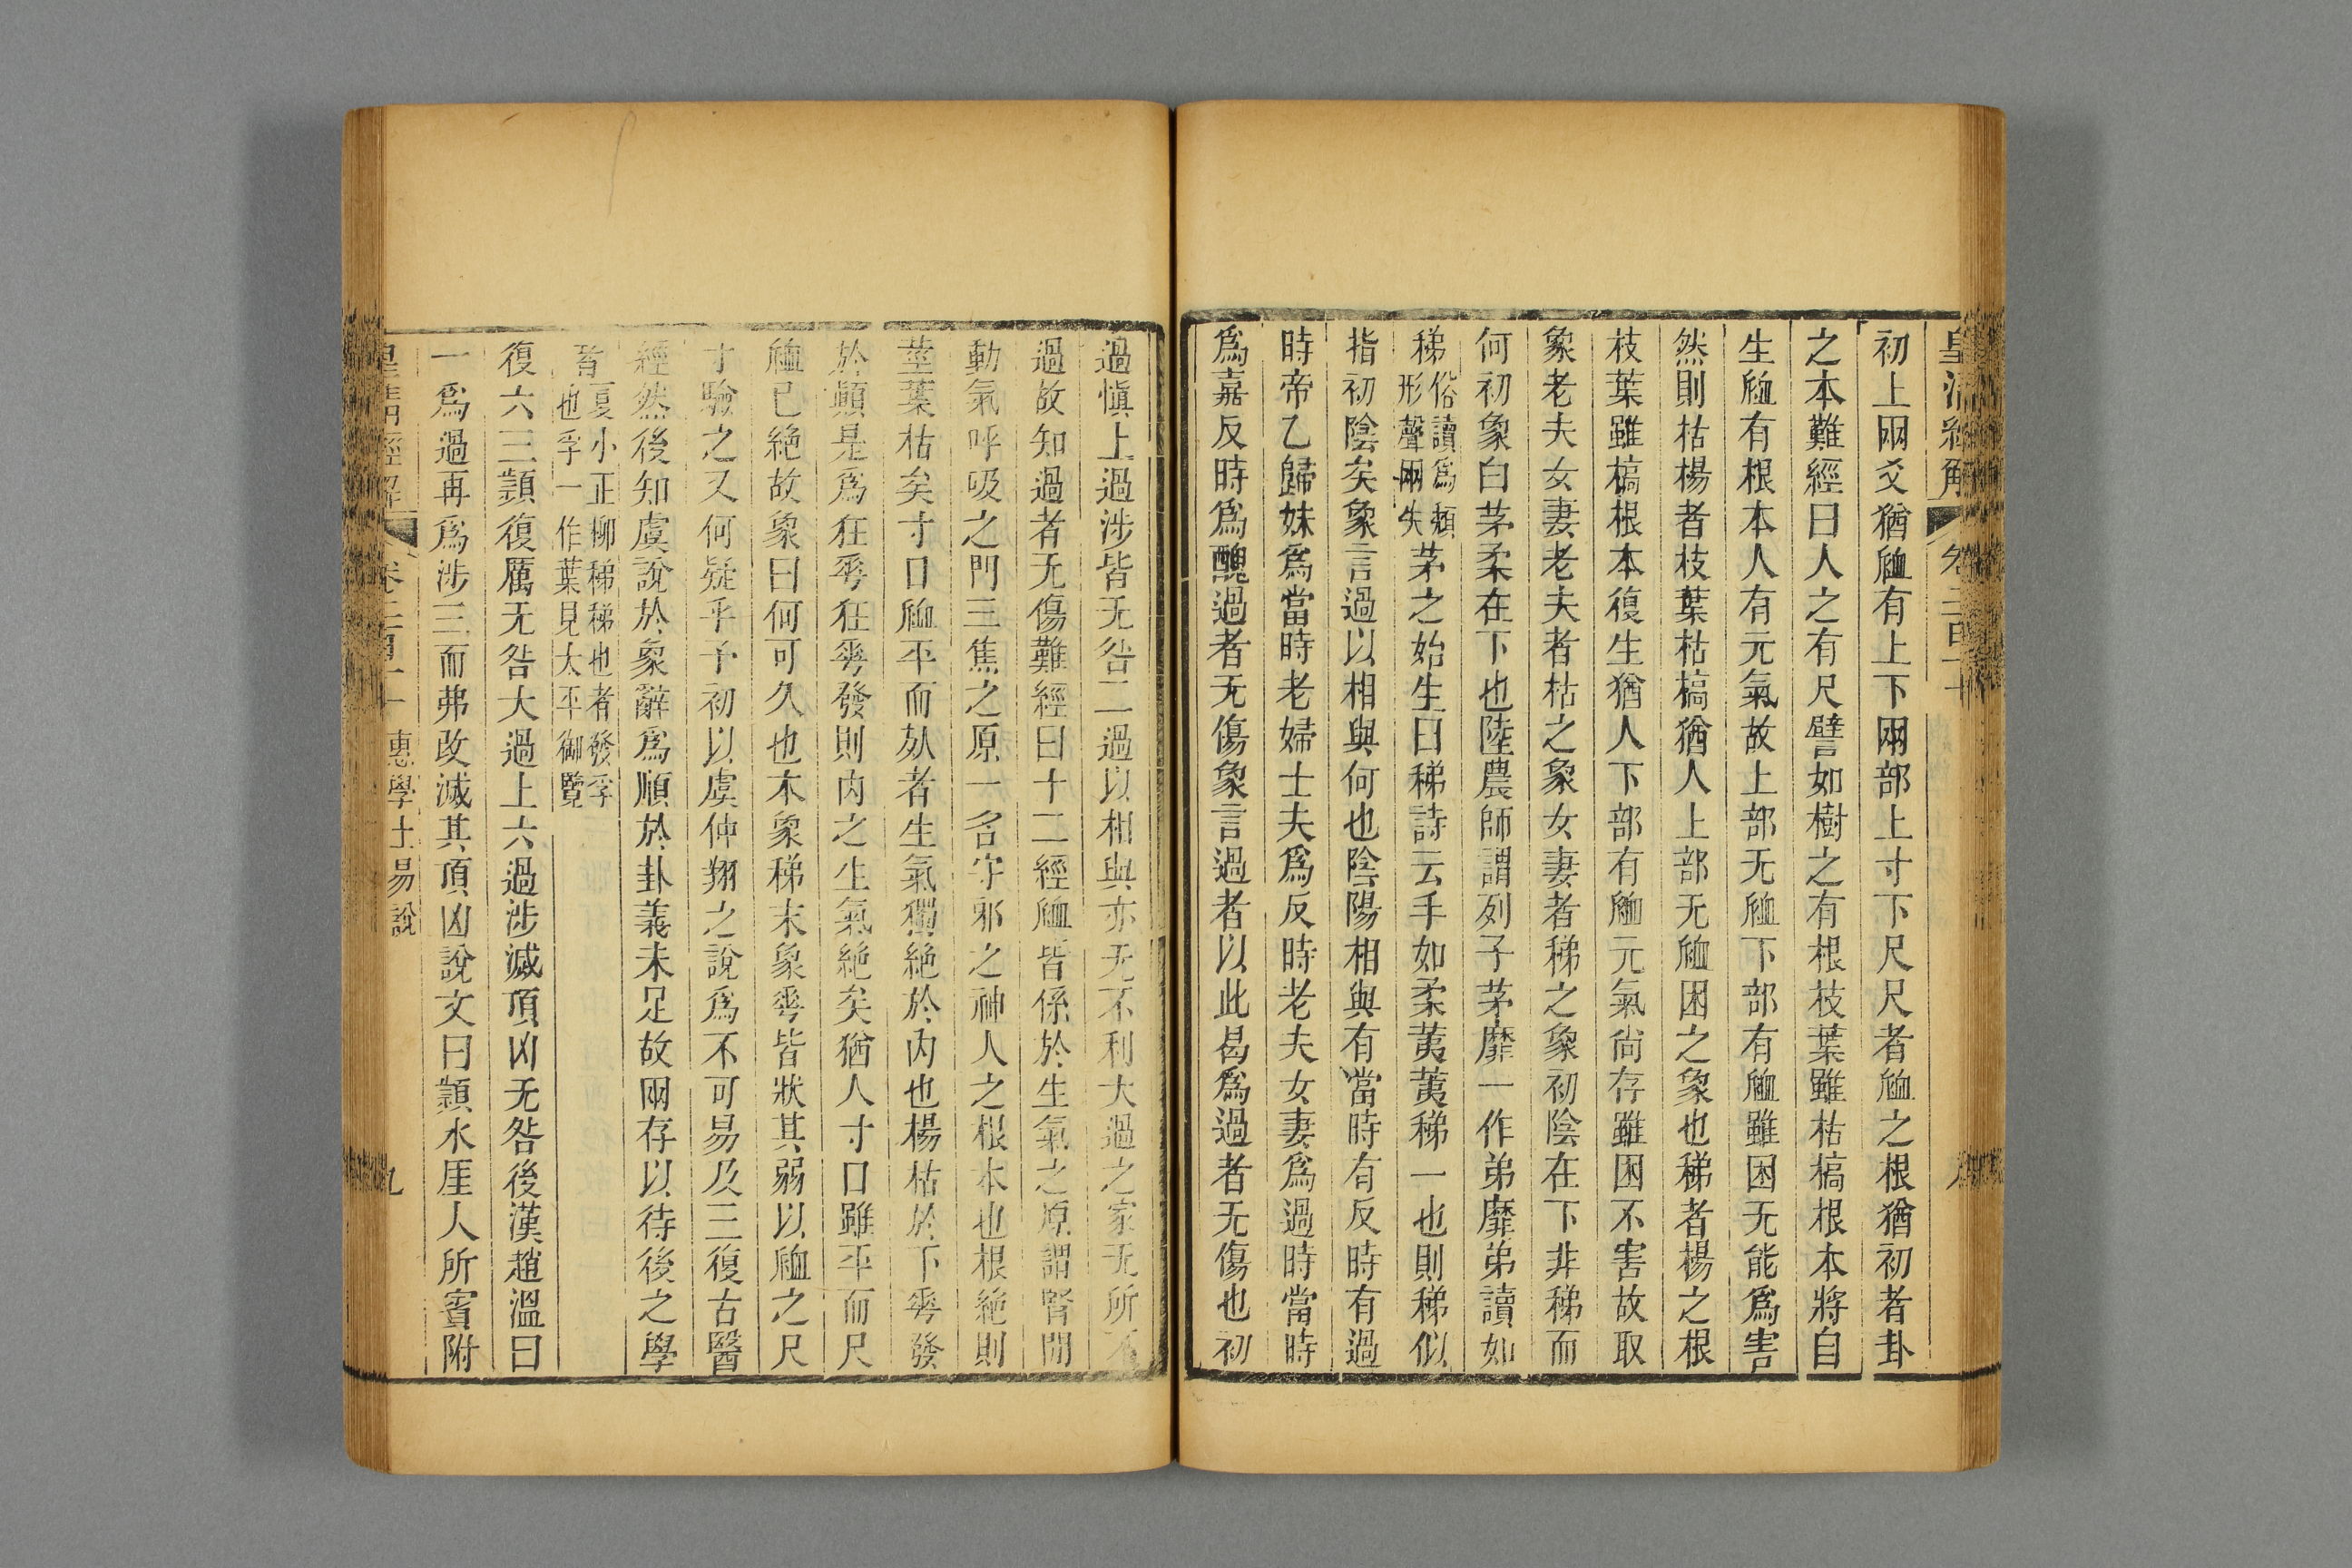 皇清經解 卷二百十 八
初上兩爻猶䘑有上下兩部上寸下尺尺者䘑之根猶初者卦
之本難經曰人之有尺譬如樹之有根枝葉雖枯槁根本將自
生䘑有根本人有元氣故上部无䘑下部有䘑雖困无能爲害
然則枯楊者枝葉枯槁猶人上部无䘑困之象也稊者楊之根
枝葉雖槁根本復生猶人下部有䘑元氣尙存雖困不害故取
象老夫女妻老夫者枯之象女妻者稊之象初陰在下非稊而
何初象白茅柔在下也陸農師謂列子茅靡一作弟靡弟讀如
稊俗讀爲頹形聲兩失茅之始生曰稊詩云手如柔荑荑稊一也則稊似
指初陰矣象言過以相與何也陰陽相與有當時有反時有過
時帝乙歸妹爲當時老婦士夫爲反時老夫女妻爲過時當時
爲嘉反時爲醜過者无傷象言過者以此曷爲過者无傷也初
過愼上過涉皆无咎二過以相與亦无不利大過之家无所不
過故知過者无傷難經曰十二經䘑皆係於生氣之原謂腎閒
動氣呼吸之門三焦之原一名守邪之神人之根本也根絶則
莖葉枯矣寸口䘑平而死者生氣獨絶於內也楊枯於下華發
於顚是爲狂華狂華發則內之生氣絶矣猶人寸口雖平而尺
䘑已絶故象曰何可久也本象稊末象華皆狀其弱以䘑之尺
寸驗之又何疑乎予初以虞仲翔之說爲不可易及三復古醫
經然後知虞說於象辭爲順於卦義未足故兩存以待後之學
者夏小正柳稊稊也者發孚也孚一作葉見太平御覽
復六三顰復厲无咎大過上六過涉滅頂凶无咎後漢趙溫曰
一爲過再爲涉三而弗改滅其頂凶說文曰顰水厓人所賓附
皇淸經解 卷二百十 惠學士易說 九